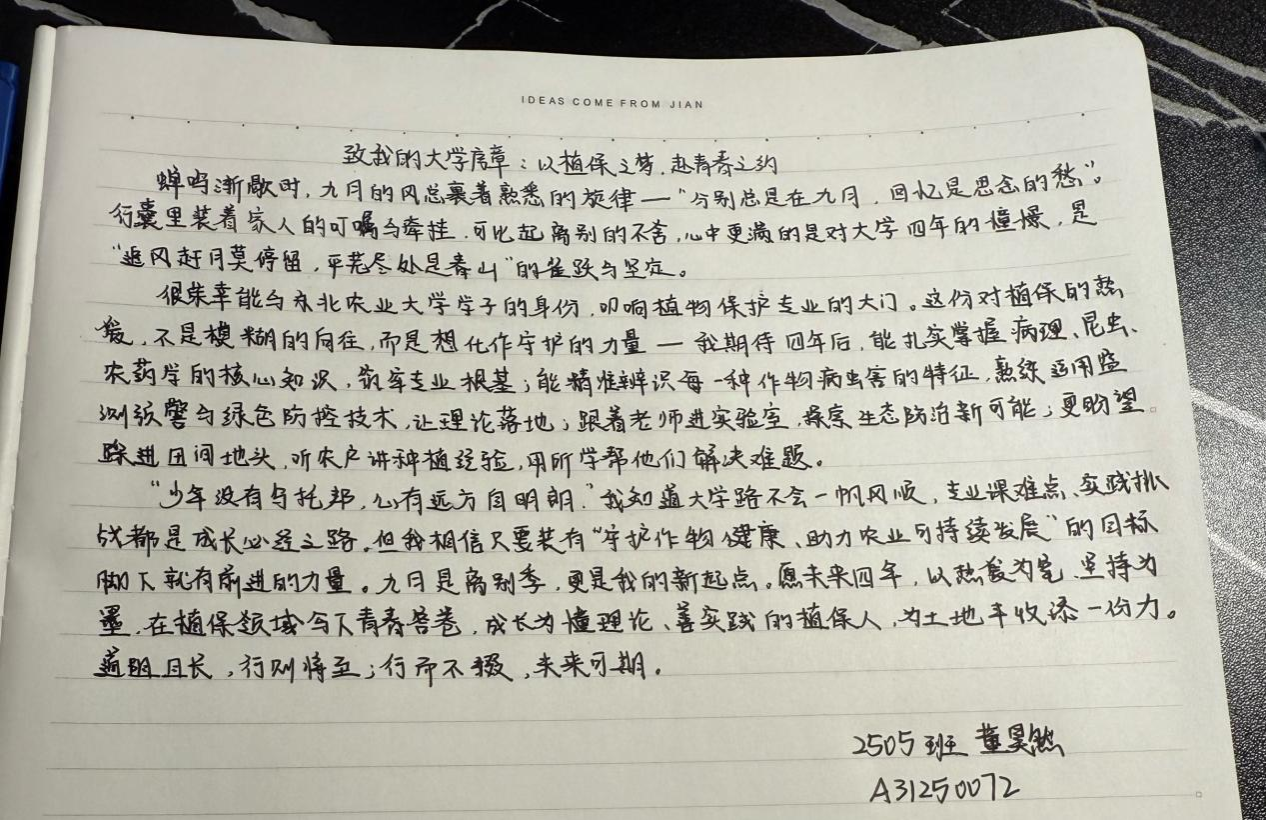 IDEAS COME FROM JIAN
致我的大学序章：以植保之梦，赴青春之约
蝉鸣渐歇时，九月的风总裹着熟悉的旋律—"分别总是在九月，回忆是思念的愁"。
行囊里装着家人的叮嘱与牵挂，可比起离别的不舍，心中更满的是对大学四年的憧憬，是
"追风赶月莫停留，平芜尽处是春山"的雀跃与坚定。
很荣幸能与东北农业大学学子的身份，叩响植物保护专业的大门。这份对植保的热
爱，不是模糊的向往，而是想化作守护的力量—我期待四年后，能扎实掌握病理、昆虫、
农药学的核心知识，筑牢专业根基；能精准辨识每一种作物病虫害的特征，熟练运用监
测预警与绿色防控技术，让理论落地；跟着老师进实验室，探索生态防治新可能；更盼望
踩进田间地头，听农户讲种植经验，用所学帮他们解决难题。
"少年没有乌托邦，心有远方自明朗。"我知道大学路不会一帆风顺，专业课难点、实践挑
战都是成长必经之路。但我相信只要装有"守护作物健康、助力农业可持续发展"的目标
脚下就有前进的力量。九月是离别季，更是我的新起点。愿未来四年，以热爱为笔、坚持为
墨，在植保领域写下青春答卷，成长为懂理论、善实践的植保人，为土地丰收添一份力。
道阻且长，行则将至；行而不辍，未来可期。
2505班 董昊然
A31250072